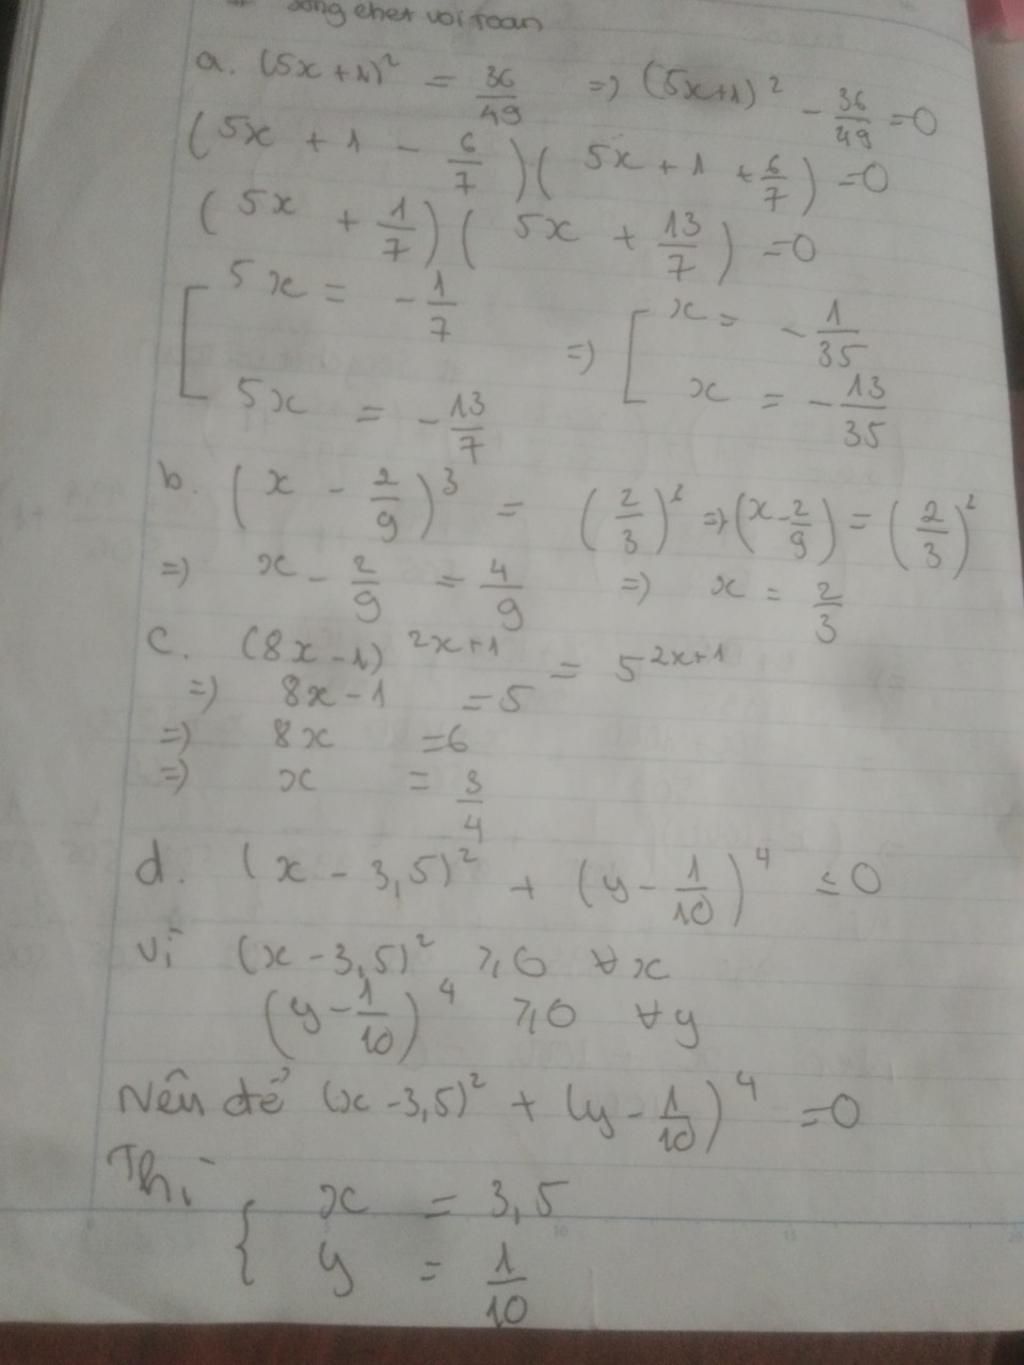 sống chết với toán
a. (5x+1)² = 36/49 => (5x+1)² - 36/49 = 0
(5x + 1 - 6/7)(5x + 1 + 6/7) = 0
(5x + 1/7)(5x + 13/7) = 0
[ 5x = -1/7 => [ x = -1/35
5x = -13/7 x = -13/35
b. (x - 2/9)³ = (2/3)² => (x - 2/9) = (2/3)²
=> x - 2/9 = 4/9 => x = 2/3
c. (8x-1)^2x+1 = 5^2x+1
=> 8x-1 = 5
=> 8x = 6
=> x = 3/4
d. (x - 3,5)² + (y - 1/10)⁴ ≤ 0
Vì (x - 3,5)² ≥ 0 ∀x
(y - 1/10)⁴ ≥ 0 ∀y
Nên để (x - 3,5)² + (y - 1/10)⁴ = 0
Thì
{ x = 3,5
y = 1/10